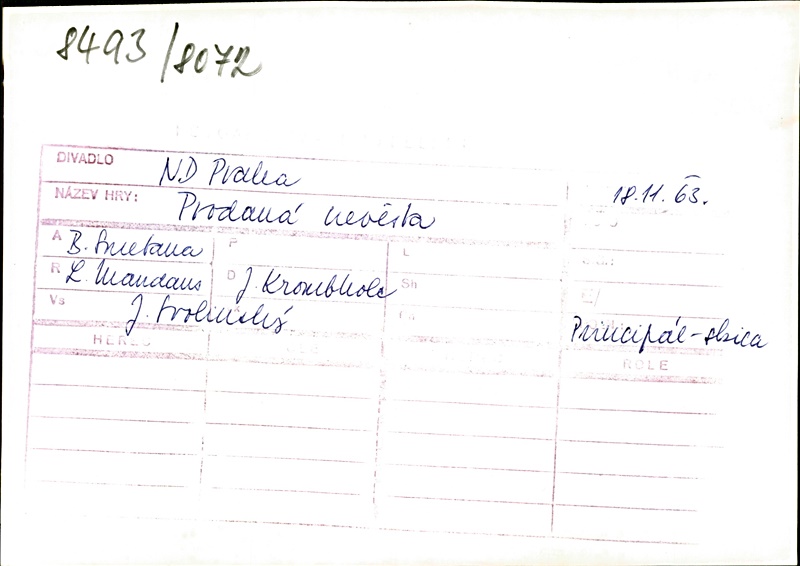 8493/8072
DIVADLO ND Praha 18.11.63.
NÁZEV HRY: Prodaná nevěsta
A B. Smetana P L
R L. Mandaus D J. Krombholc Sh
Vs J. Svolinský
Principál-skica
HEREC ROLE